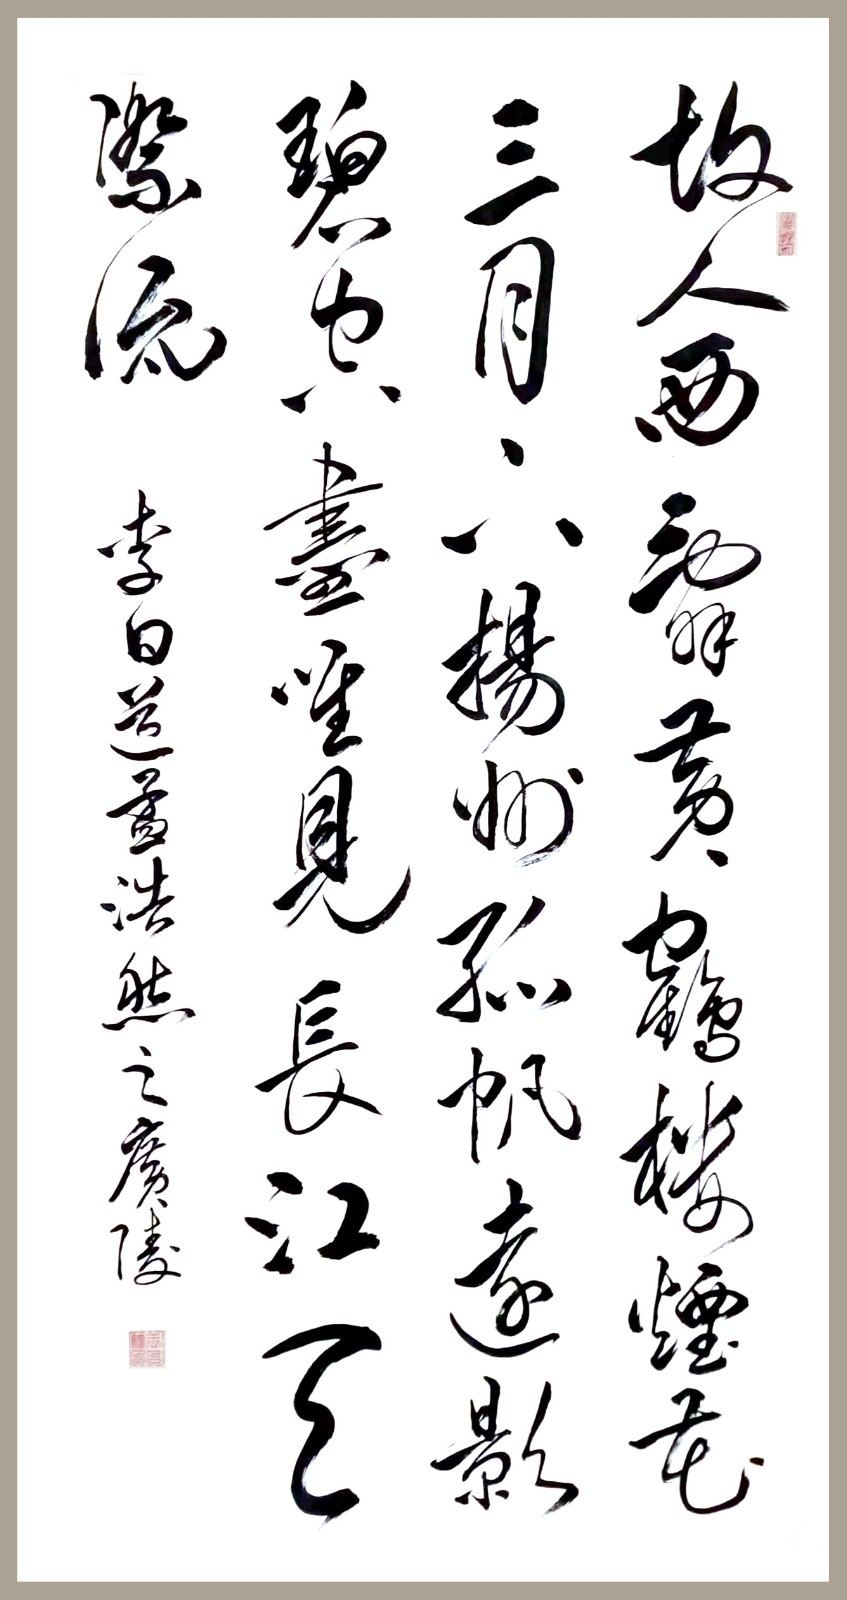 故人西辭黃鶴樓煙花
三月下揚州孤帆遠影
碧空盡唯見長江天
際流
李白送孟浩然之廣陵